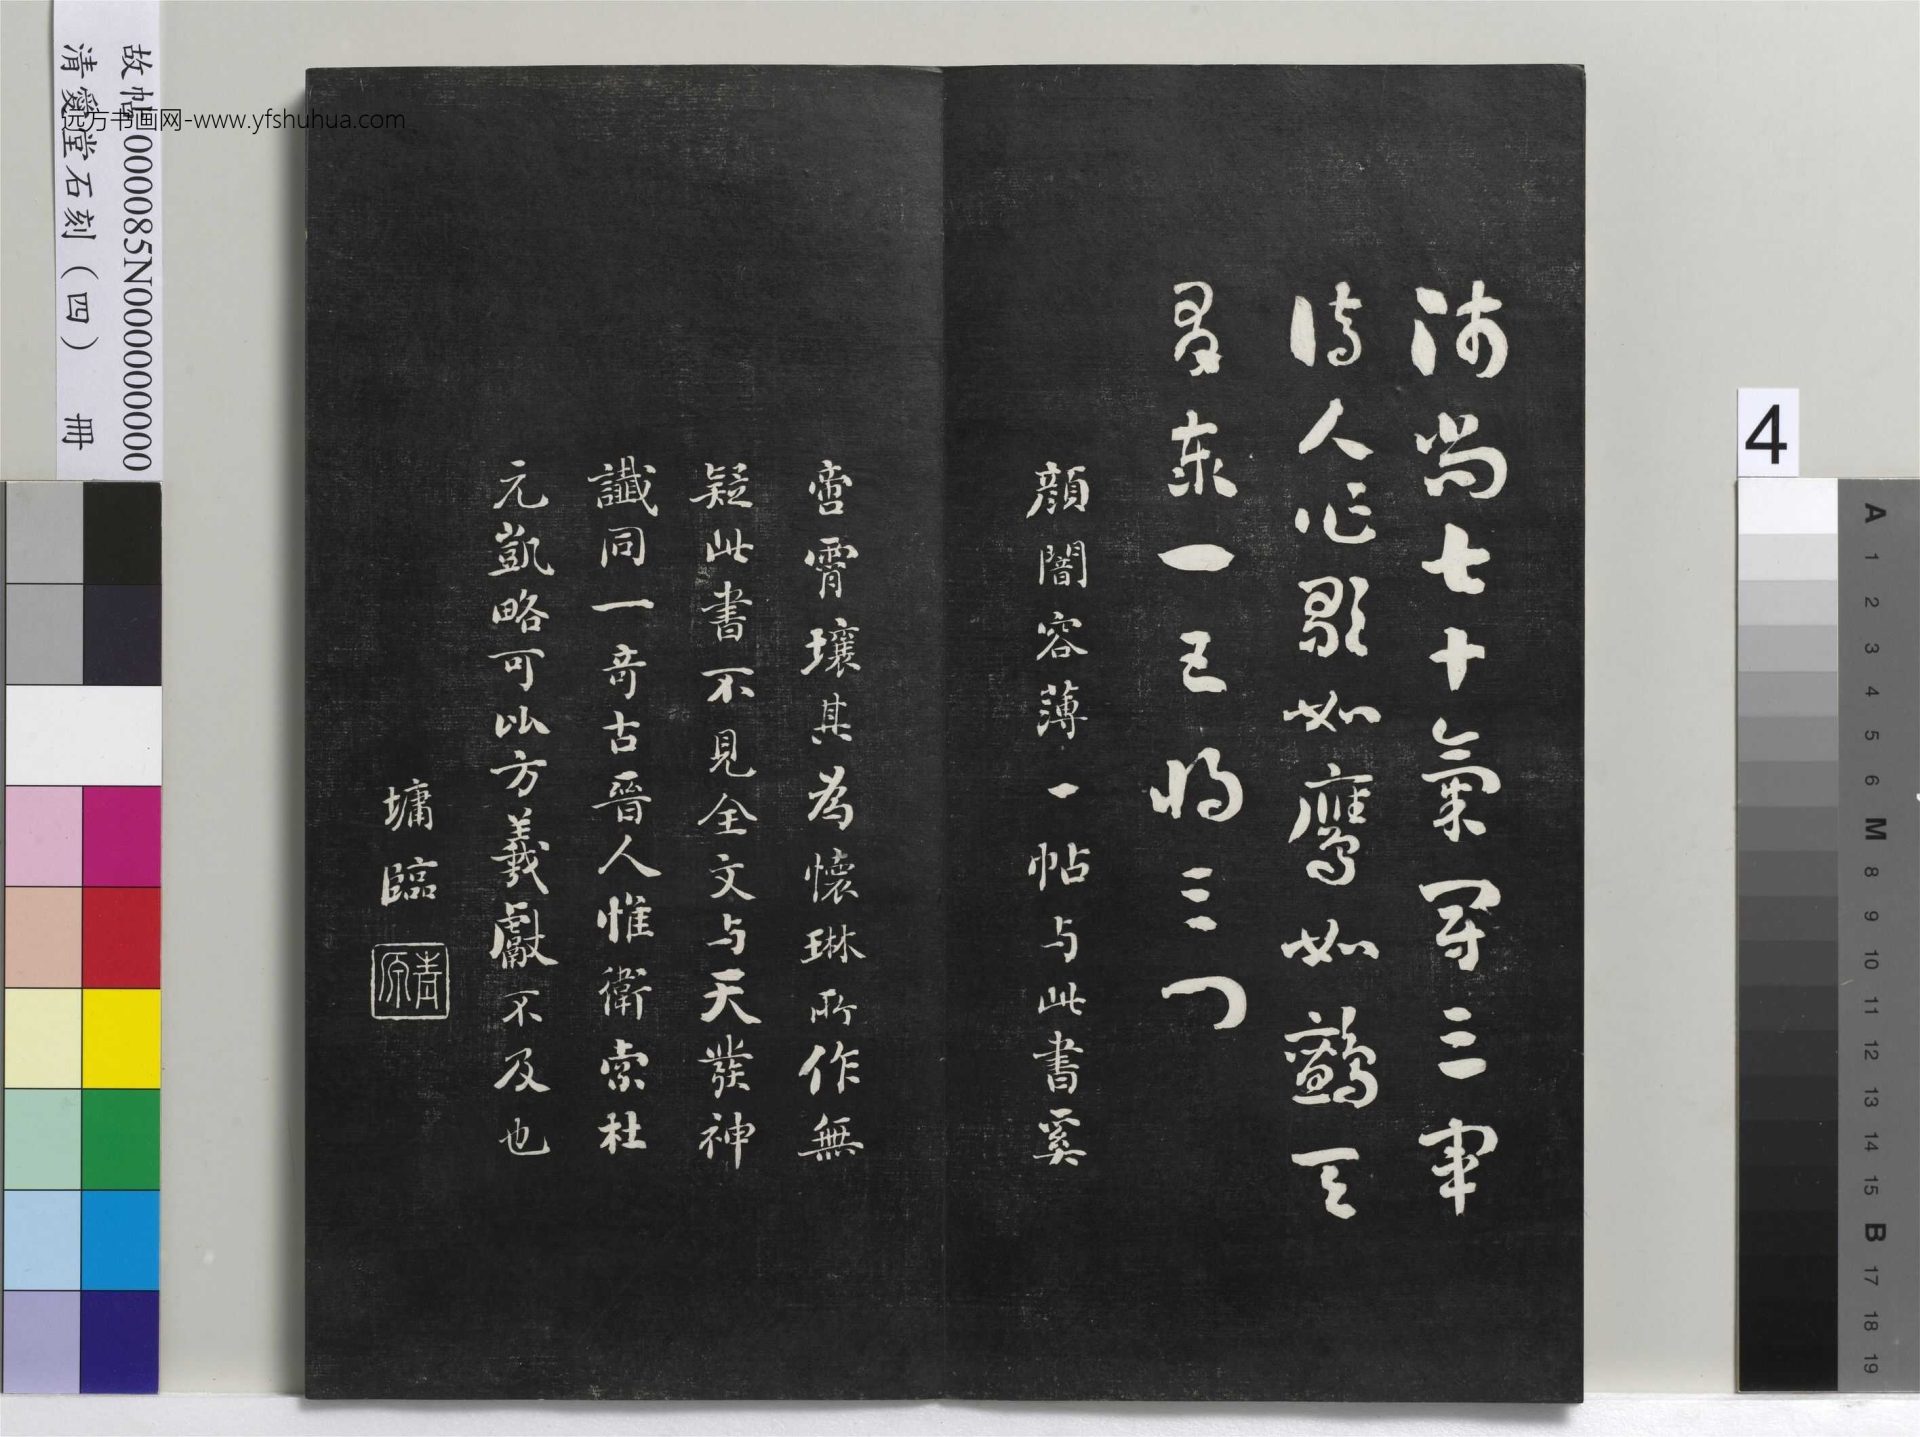 沛尚七十氣冠三軍
詩人作歌如鷹如鸇天
有末一已將三
顏闇容薄一帖与此書奚
啻霄壤其為懷琳所作無
疑此書不見全文与天發神
讖同一奇古晉人惟衛索杜
元凱略可比方羲獻不及也
墉臨
青原
故帖000085N000000000
清愛堂石刻（四） 冊
远方书画网-www.yfshuhua.com
4
A
1
2
3
4
5
6
M
8
9
10
11
12
13
14
15
B
17
18
19